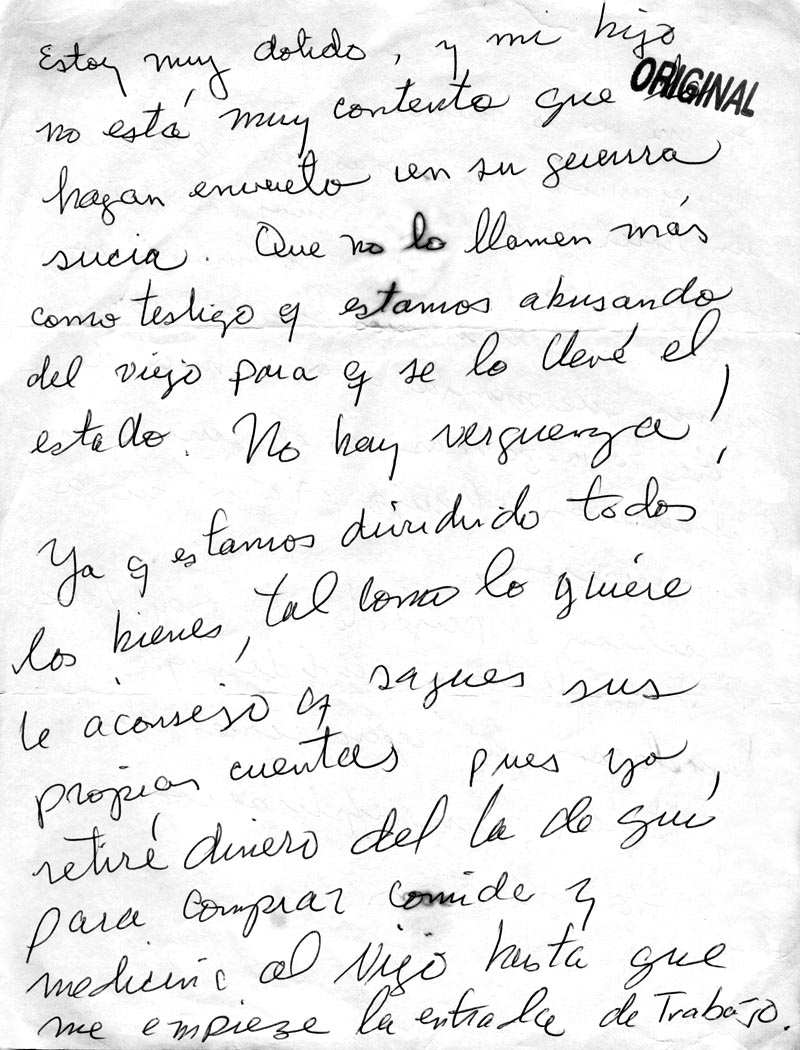 Estoy muy dolido, y mi hijo
ORIGINAL
no está muy contento que
hagan envuelto en su guerra
sucia. Que no lo llamen más
como testigo q estamos abusando
del viejo para q se lo llevé el
estado. No hay verguenza!
Ya q estamos dividido todos
los bienes, tal como lo quiere
le aconsejo q sagues sus
propias cuentas pues yo,
retiré dinero del la de
para comprar comida y
medicina al viejo hasta que
me empieze la entrada de Trabajo.